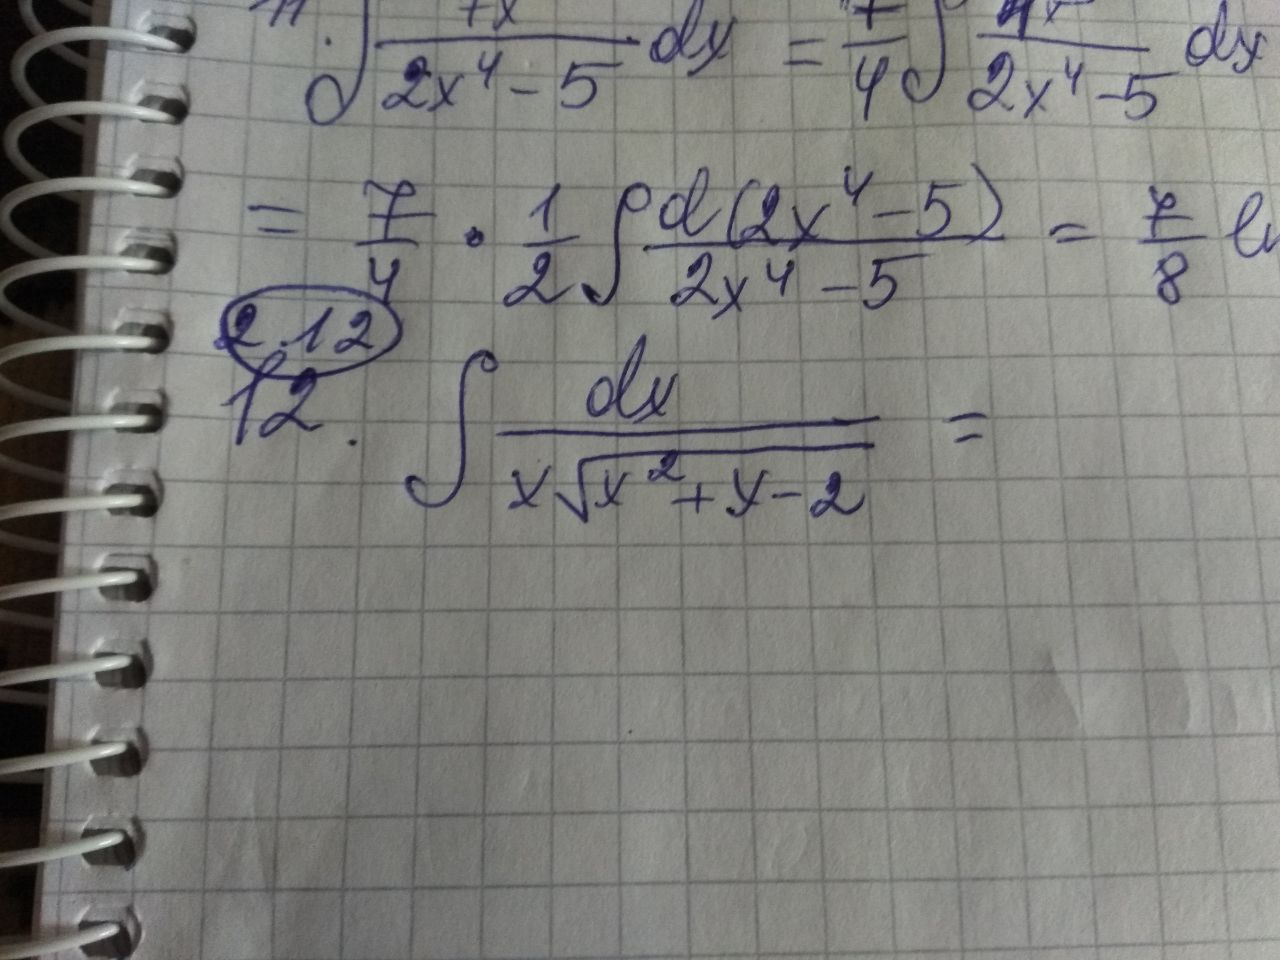 11. ∫ 7x / (2x⁴ - 5) dx = 7/4 ∫ 4x / (2x⁴ - 5) dx
= 7/4 · 1/2 ∫ d(2x⁴ - 5) / (2x⁴ - 5) = 7/8
2.12
12. ∫ dx / (x√(x² + x - 2)) =